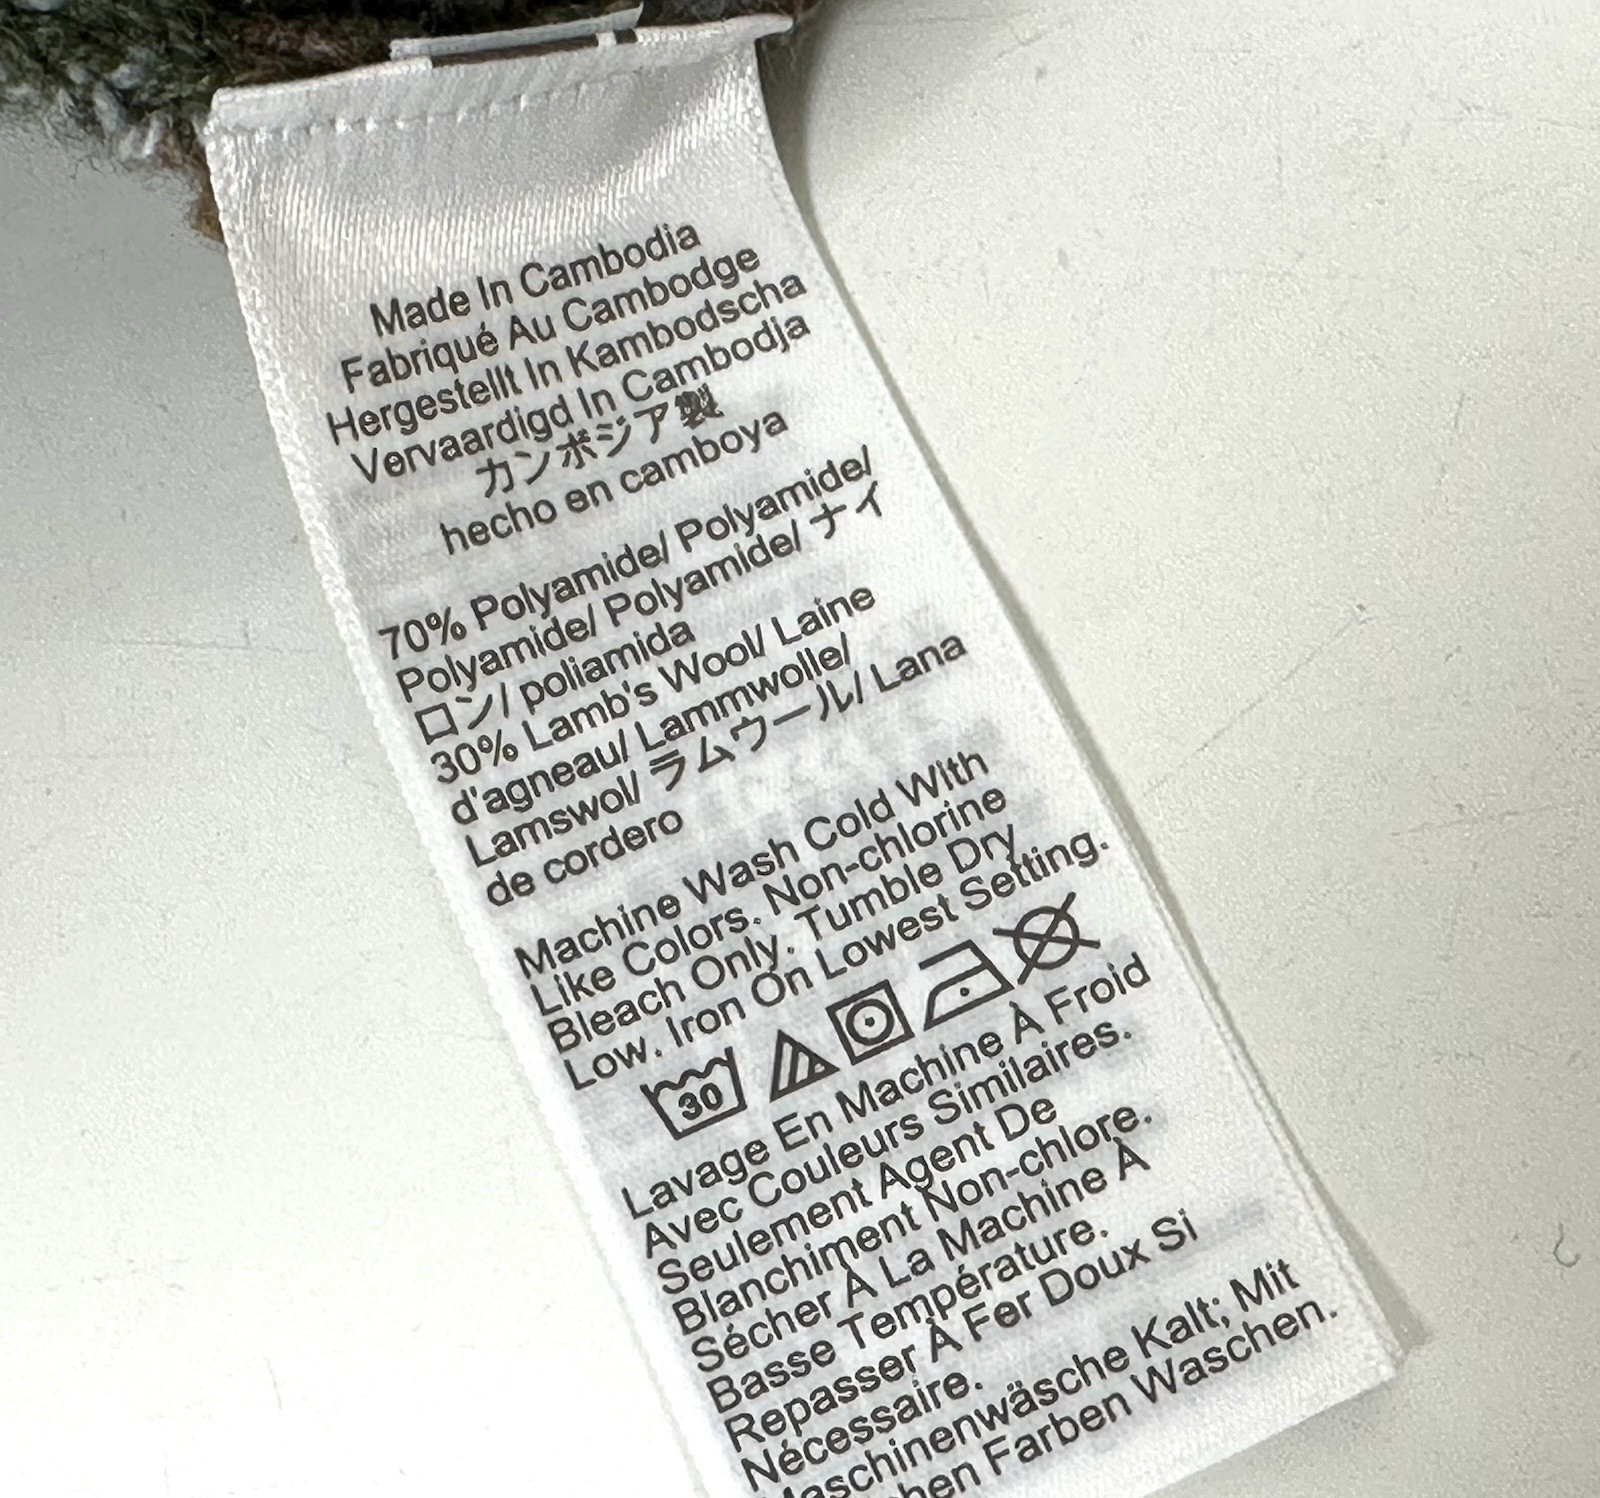 Made In Cambodia
Fabriqué Au Cambodge
Hergestellt In Kambodscha
Vervaardigd In Cambodja
カンボジア製
hecho en camboya
70% Polyamide/ Polyamide/
Polyamide/ Polyamide/ ナイ
ロン/ poliamida
30% Lamb's Wool/ Laine
d'agneau/ Lammwolle/
Lamswol/ ラムウール/ Lana
de cordero
Machine Wash Cold With
Like Colors. Non-chlorine
Bleach Only. Tumble Dry
Low. Iron On Lowest Setting.
30
Lavage En Machine À Froid
Avec Couleurs Similaires.
Seulement Agent De
Blanchiment Non-chlore.
Sécher À La Machine À
Basse Température.
Repasser À Fer Doux Si
Nécessaire.
Maschinenwäsche Kalt; Mit
Farben Waschen.